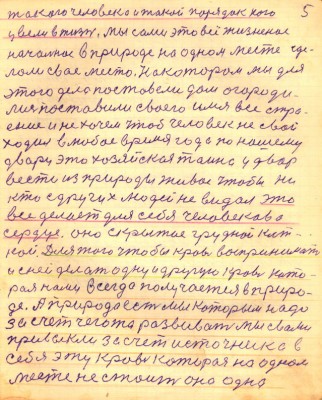 5
такого человека и такой порядок кого
увели в тизн. Мы сами это ей жизненое
начатое в природе на одном месте сде-
лали свае место. На котором мы для
этого дела поставели дом огороди-
лися поставили своего имля все стро-
ение и не хочем чтоб человек не свой
ходил в любое время года по нашему
двару это хозяйская таина у двар
вести из природы живое чтобы ни
кто с других людей не видал это
все делает для себя человек а во
сердце. оно скрытое грудной клт-
кой. Для того чтобы кровь воспринимат
и с ней делат одну и другую кровь кото-
рая нами всегда получается в приро-
де. А природа есть мы которым надо
за счет чего то развиват мы с вами
привыкли за счет источника в
себя эту кровь которая на одном
месте не стоит она одна